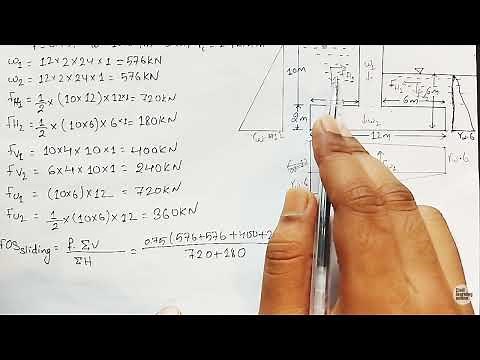 ω₁ = 12×2×24×1 = 576KN
ω₂ = 12×2×24×1 = 576KN
F_H₁ = 1/2 × (10×12)×12×1 = 720KN
F_H₂ = 1/2 × (10×6)×6×1 = 180KN
F_V₁ = 10×4×10×1 = 400KN
F_V₂ = 6×4×10×1 = 240KN
F_U₁ = (10×6)×12 = 720KN
F_U₂ = 1/2 × (10×6)×12 = 360KN
FOS sliding = f. ΣV / ΣH = 0.75 (576+576+400+2 / 720+180
10m
ω₁
6m
2m
ω₂
12m
γω·12
γω·6
γω·6
Civil learning online